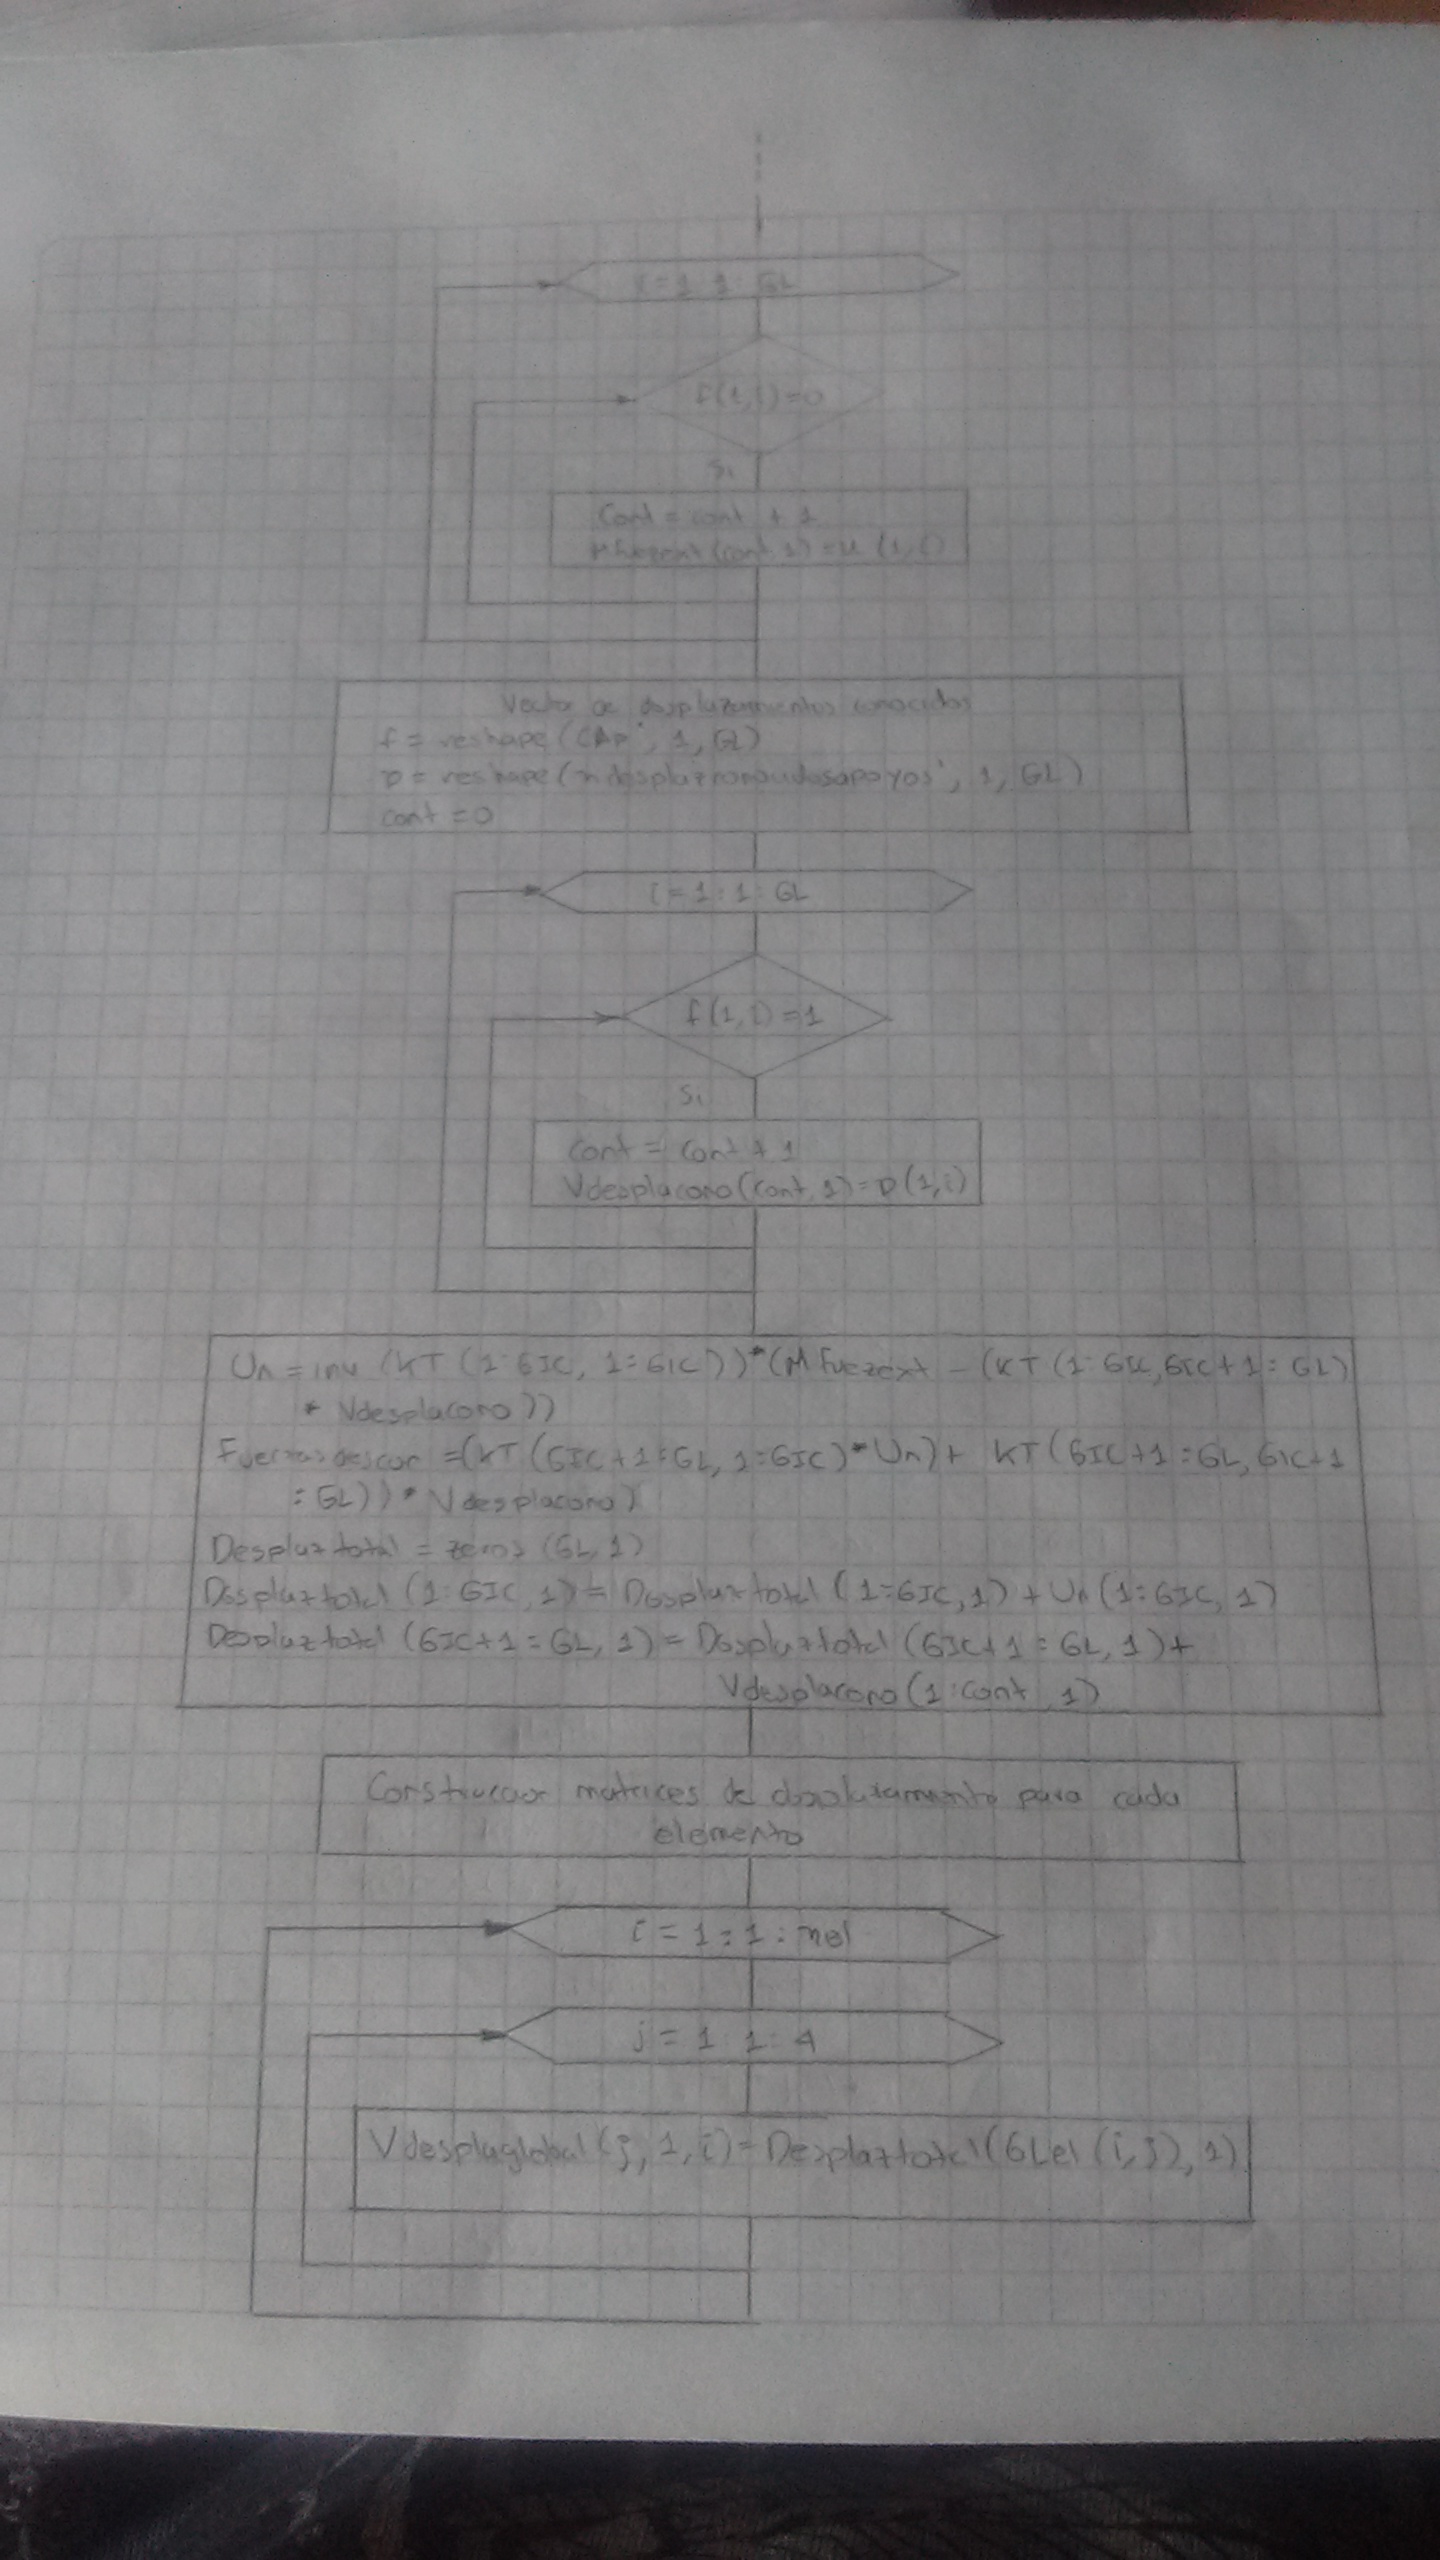 i = 1 : 1 : GL
f(1,i) = 0
Si
Cont = cont + 1
MFuerext (cont, 1) = u (1, i)
Vector de desplazamientos conocidos
f = reshape (CAP', 1, GL)
D = reshape ( ', 1, GL)
cont = 0
i = 1 : 1 : GL
f(1, i) = 1
Si
Cont = Cont + 1
Vdesplacono (cont, 1) = D (1, i)
Un = inv (KT (1:GIC, 1:GIC)) * (MFuezext - (KT (1:GIC, GIC+1:GL)
* Vdesplacono))
= (KT (GIC+1:GL, 1:GIC) * Un) + KT (GIC+1:GL, GIC+1
:GL)) * Vdesplacono)
Desplaztotal = zeros (GL, 1)
Desplaztotal (1:GIC, 1) = Desplaztotal (1:GIC, 1) + Un (1:GIC, 1)
Desplaztotal (GIC+1:GL, 1) = Desplaztotal (GIC+1:GL, 1) +
Vdesplacono (1:cont, 1)
matrices de desplazamiento para cada
elemento
i = 1 : 1 : nel
j = 1 : 1 : 4
Vdesplaglobal (j, 1, i) = Desplaztotal (GLel (i, j), 1)